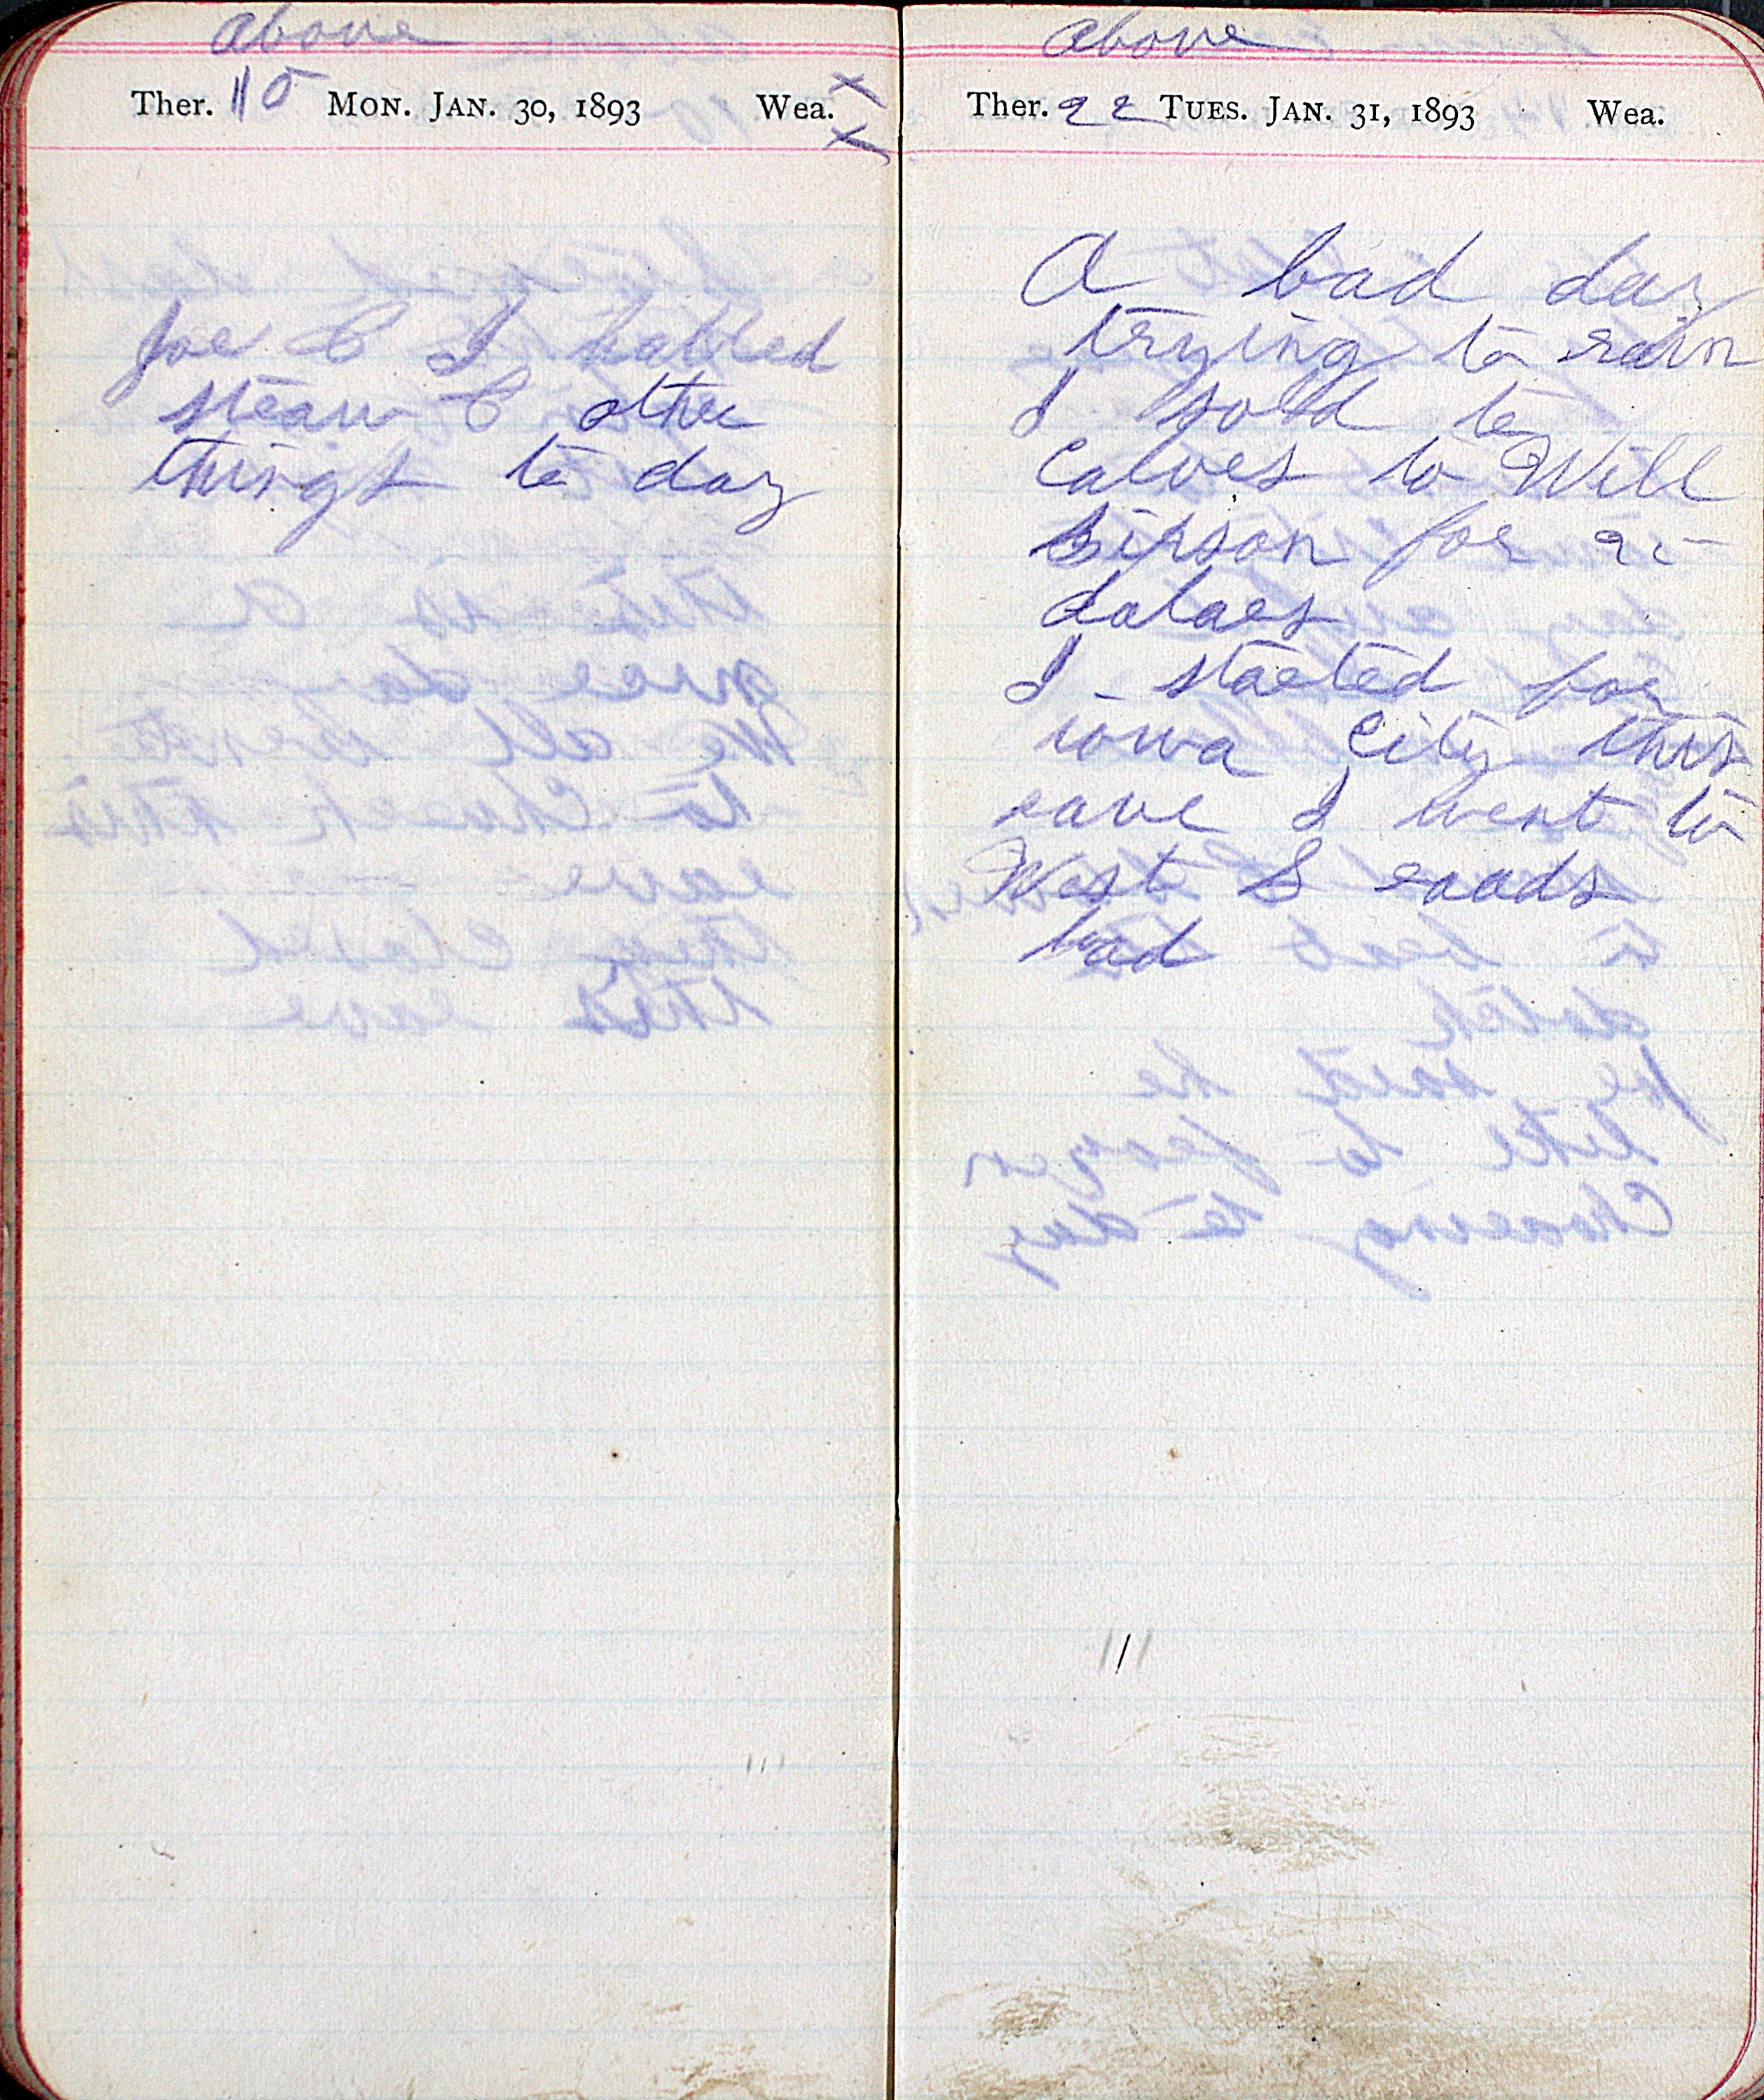 above
Ther. 110 Mon. Jan. 30, 1893 Wea. x x
Joe & I halled
straw & other
things to day
above
Ther. 22 Tues. Jan. 31, 1893 Wea.
A bad day
trying to rain
I sold te
calves to Will
for
dolars
I started for
iowa city this
eave I went to
West S roads
bad